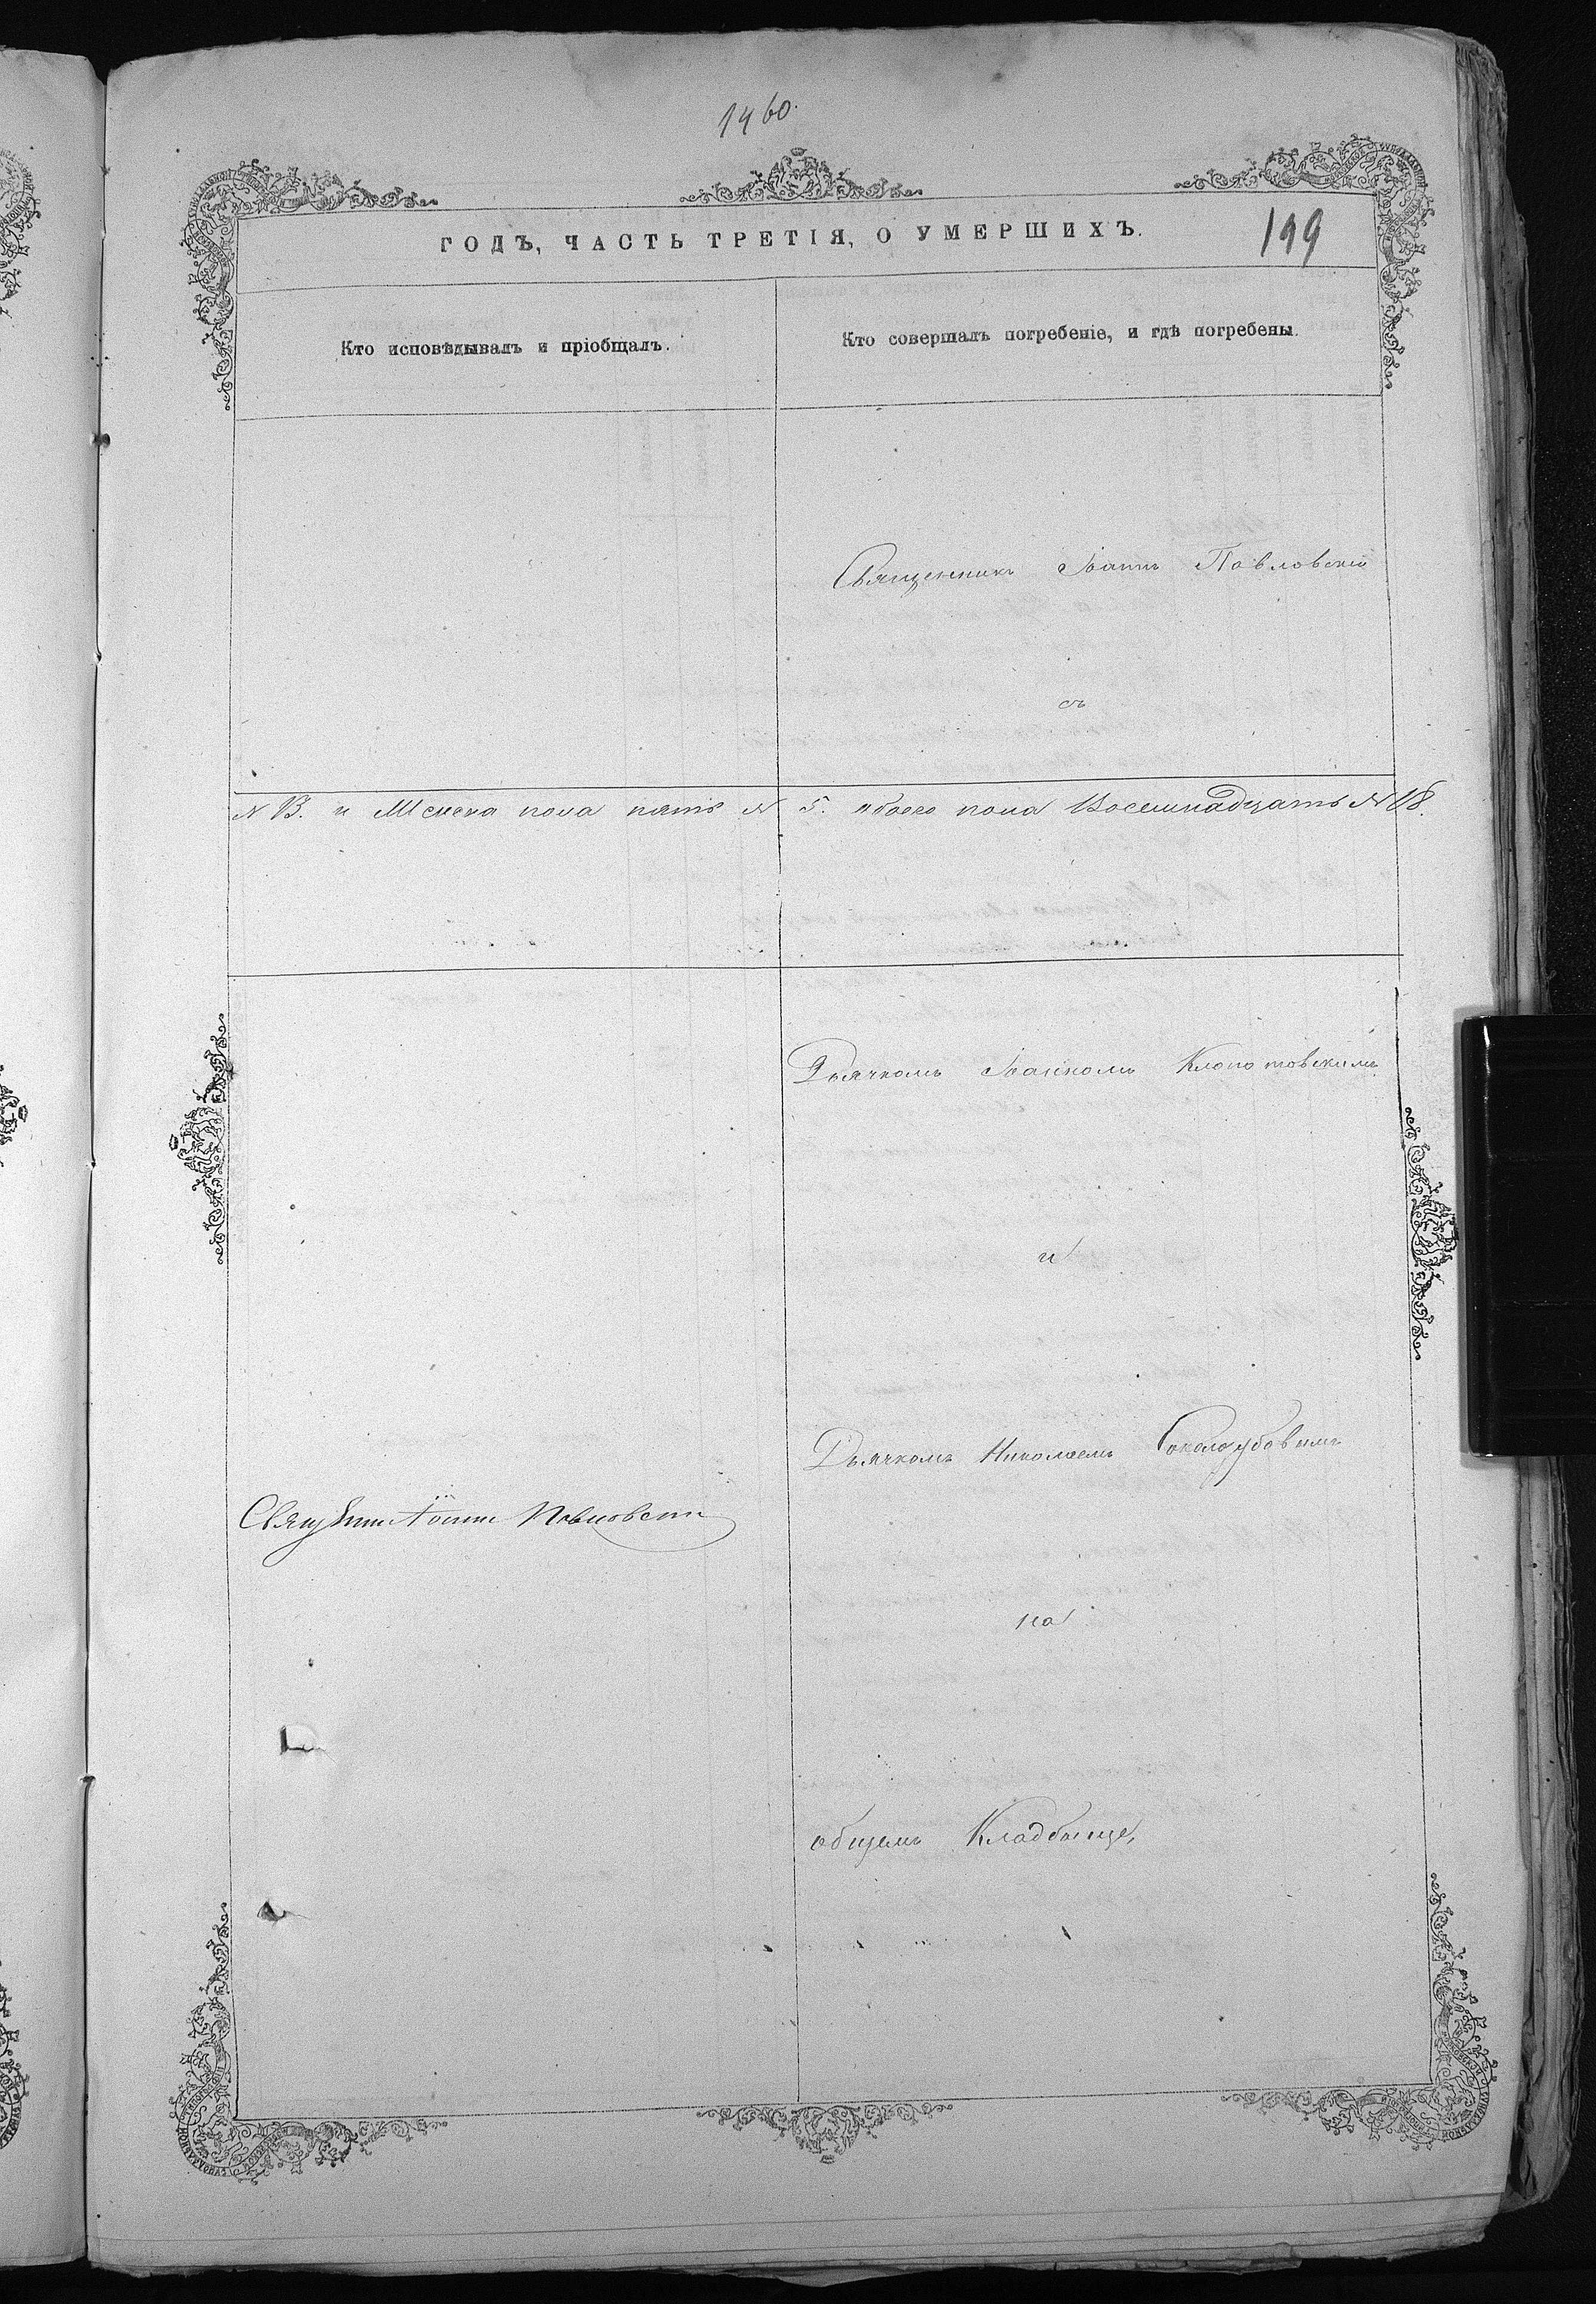 1460.
ГОДЪ, ЧАСТЬ ТРЕТІЯ, О УМЕРШИХЪ.
199
Кто исповѣдывалъ и пріобщалъ.
Кто совершалъ погребеніе, и гдѣ погребены.
Священникъ Іоаннъ Павловскій
съ
№ 13. и Женска пола пять № 5. обоего пола Восемнадцать № 18.
Дьячкомъ Іоанномъ Клопотовскимъ
и
Дьячкомъ Николаемъ Голодубовымъ
Іоаннъ Павловскій
на
общемъ Кладбище,